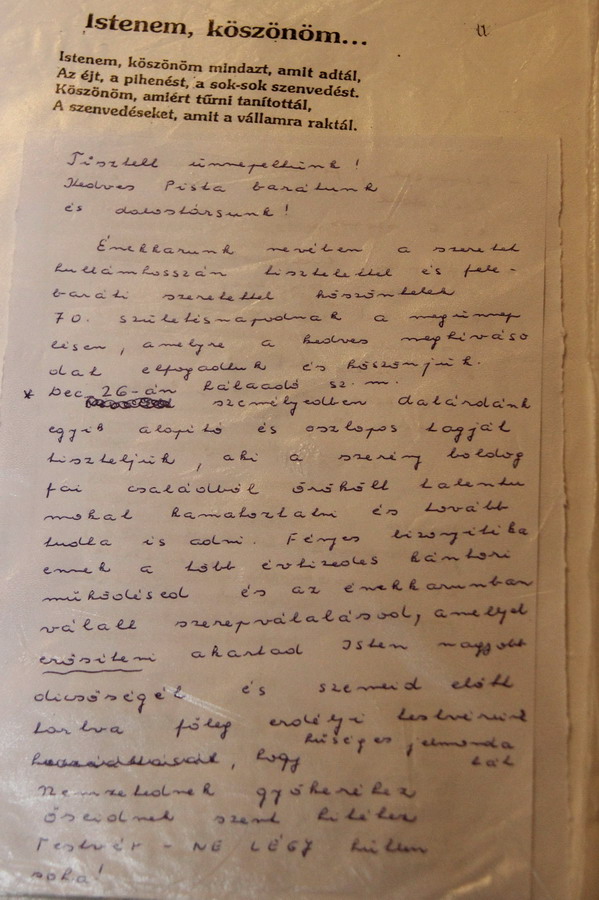 Istenem, köszönöm...
11
Istenem, köszönöm mindazt, amit adtál,
Az éjt, a pihenést, a sok-sok szenvedést.
Köszönöm, amiért tűrni tanítottál,
A szenvedéseket, amit a vállamra raktál.
Tisztelt ünnepeltünk!
Kedves Pista barátunk
és dalostársunk!
Énekkarunk nevében a szeretet
hullámhosszán tisztelettel és fele-
baráti szeretettel köszöntelek
70. születésnapodnak a megünnep
lésen, amelyre a kedves meghíváso
dat elfogadtuk és köszönjük.
* Dec 26-án hálaadó sz. m.
személyedben dalárdánk
egyik alapító és oszlopos tagját
tiszteljük, aki a szerény boldog
fai családból örökölt talentu
mokat kamatoztatni és tovább
tudta is adni. Fényes bizonyítéka
ennek a több évtizedes kántori
működésed és az énekkarunkban
vállalt szerepválalásod, amelyel
erősíteni akartad Isten nagyobb
dicsőségét és szemeid előtt
tartva főleg erdélyi testvéreink
hűséges jelmonda
, hogy tát
Nemzetednek gyökeréhez
őseidnek szent hitéhez
Testvér - NE LÉGY hűtlen
soha!